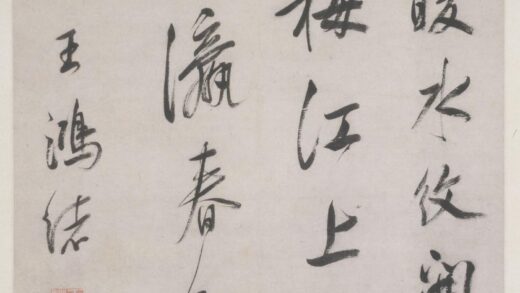 暖水紋開
梅江上
瀛春
王鴻緒